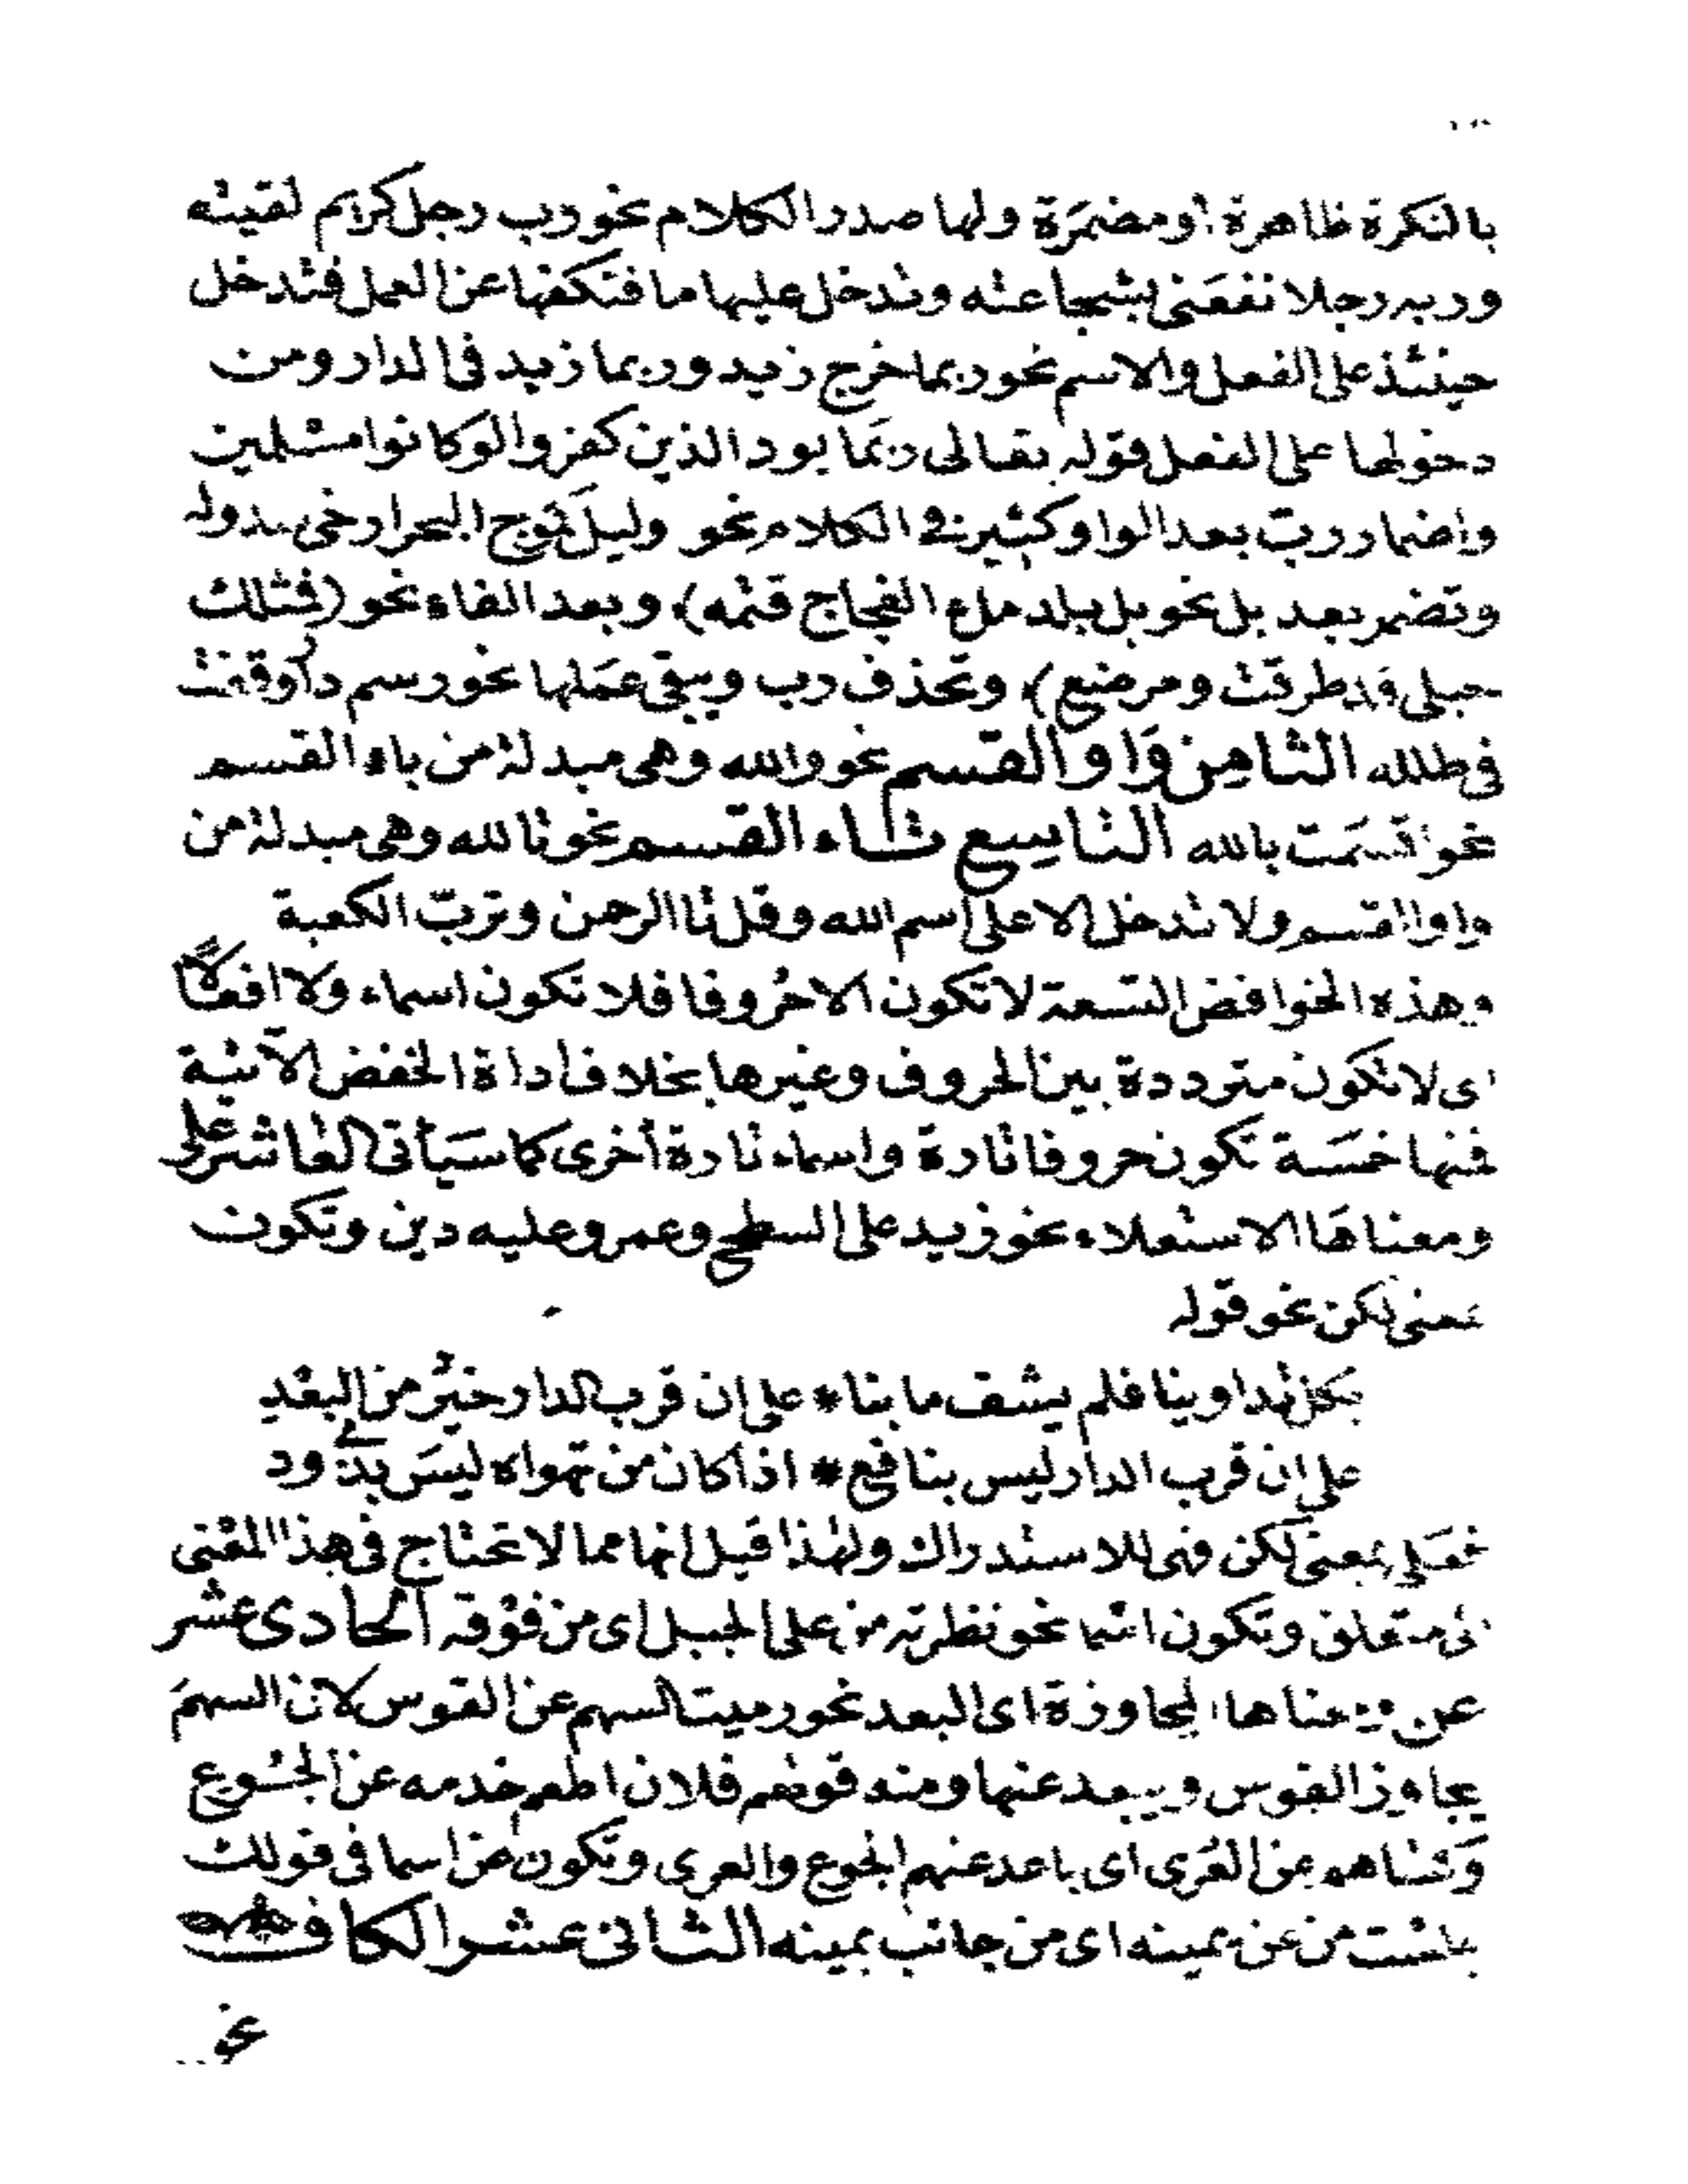 بالنكرة ظاهرة أو مضمَرَة ولها صدر الكلام نحو رب رجل كريم لقيته
وربه رجلا نفعَنى بشجاعته وتدخل عليها ما فتكفها عن العمل فتدخل
حينئذ على الفعل والاسم نحو ربما خرج زيد وربما زيد فى الدار ومن
دخولها على الفعل قوله تعالى ربَمَا يود الذين كفروا لو كانوا مسْلمين
واضمار ربّ بعد الواو كثير فى الكلام نحو وليل كموج البحر ارخى سدوله
وتضمر بعد بل نحو بل بلد ملء الفجاج قتمه) وبعد الفاء نحو (فمثلك
حبلى قد طرقت ومرضع) وتحذف رب ويبقى عمَلها نحو رسم دار وقفت
فى طلله الثامِن وَاو القسم نحو والله وهى مبدلة من باء القسم
نحو اقسَمت بالله التاسِع تاء القسم نحو تالله وهى مبدلة من
واو القسم ولا تدخل الا على اسم الله وقل تا الرحمن وتربّ الكعبة
وهذه الخوافض التسعة لا تكون الا حُروفا فلا تكون اسماء ولا افعالًا
اى لا تكون مترددة بين الحروف وغيرها بخلاف اداة الخفض الآتية
فمنها خمسَة تكون حروفا تارة واسماء تارة أخرى كما سَيأتى العاشر على
ومعناهَا الاستعلاء نحو زيد على السطح وعمرو عليه دين وتكون
بمعنى لكن نحو قوله
بكل تداوينا فلم يشف ما بنا * على ان قرب الدار خيرٌ من البعْدِ
على ان قرب الدار ليس بنافع * اذا كان من تهواه ليسَ بذى ود
فعَلى بمعنى لكن فهى للاستدراك ولهذا قيل انها مما لا تحتاج فى هذا المعْنى
الى متعلق وتكون اسما نحو نظرته من على الجبل اى من فوْقه الحادى عشر
عن ومعناها المجاوزة اى البعد نحو رميت السهم عن القوس لانّ السهمَ
يجاوز القوس ويبعد عنها ومنه قولهم فلان اطعم خدمه عن الجُوع
وَكساهم عن العُرى اى باعد عنهم الجوع والعرى وتكون عن اسما فى قولك
جلسْت من عن يمينه اى من جانب يمينه الثانى عشر الكاف
نحو